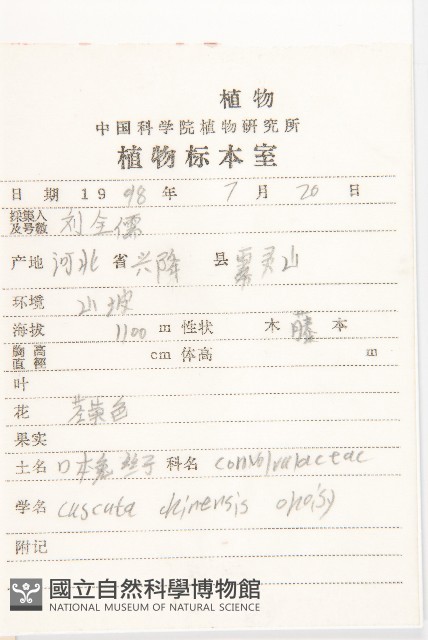 植物
中国科学院植物研究所
植物标本室
日期 1998年 7月 20日
採集人及号数 刘全儒
产地 河北省 兴隆县 雾灵山
环境 山坡
海拔 1100 m 性状 木 藤 本
胸高直徑 cm 体高 m
叶
花 茎黄色
果实
土名 日本菟丝子 科名 convolvulaceae
学名 cuscuta chinensis
附记
國立自然科學博物館
NATIONAL MUSEUM OF NATURAL SCIENCE